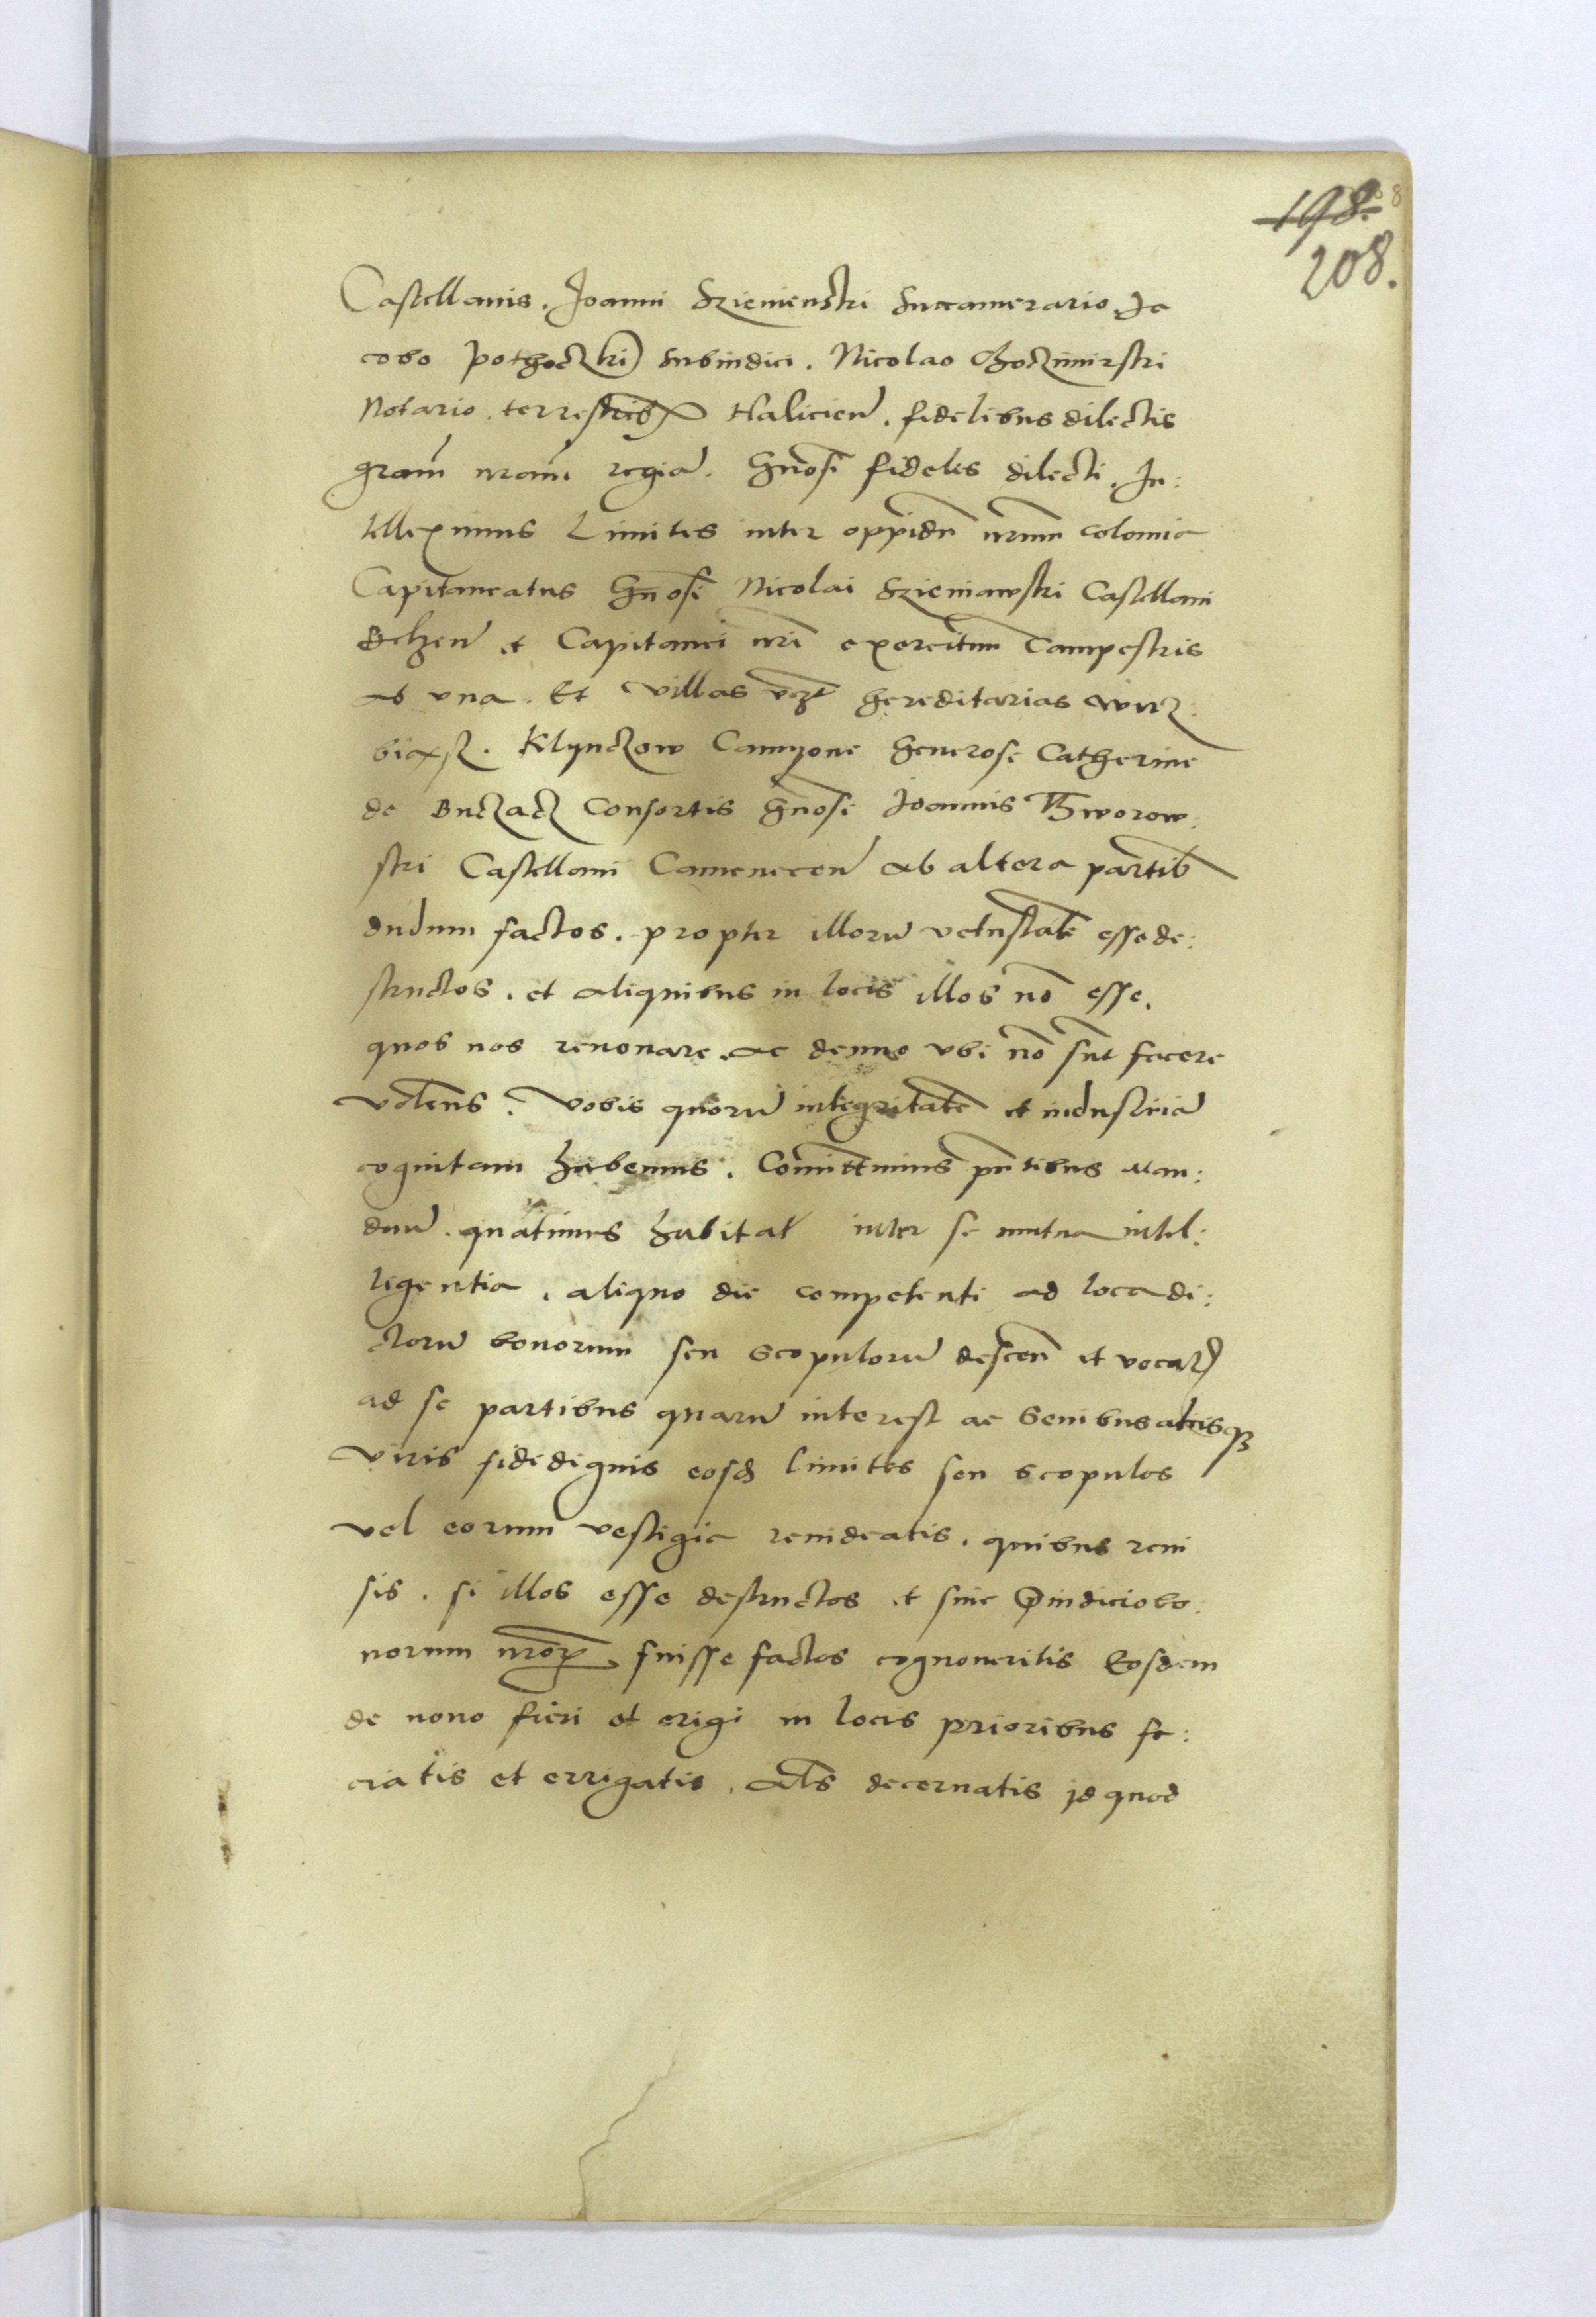 198.
208.
Castellanis. Joanni Szienienski Succamerario. Ja
cobo Pothoczki Subiudici. Nicolao Choczimirski
Notario. terrestribus Halicien. fidelibus dilectis
gram nram regia. Gnosi fideles dilecti. In:
telleximus Limites inter oppidu nrum Colomia
Capitaneatus Gnosi Nicolai Szieniawski Castellani
Belzen et Capitanei nri exercituum Campestris
ab vna. Et villas hereditarias
Klynczow Camyone Generose Catherine
de Buczacz Consortis Gnosi Joannis Thworow:
ski Castellani Camenecen ab altera partib
dudum factos. propter illoru vetustate esse de:
structos. et aliquibus in locis illos no esse.
quos nos renouare ac denuo vbi no sunt facere
volens. Vobis quoru integritate et industria
cognitam habemus. Comittimus pntibus Man:
dam. quatinus habita inter se mutua intel:
ligentia. aliquo die competenti ad loca di:
ctoru bonorum seu scopuloru descen et vocatis
ad se partibus quaru interest ac Senibus alijsq
viris fidedignis eosd limites seu scopulos
vel eorum vestigia reuideatis. quibus reui
sis. si illos esse destructos et sine preiudicio bo:
norum nror fuisse factos cognoueritis Eosdem
de nouo fieri et erigi in locis prioribus fa:
ciatis et errigatis. als decernatis id quod